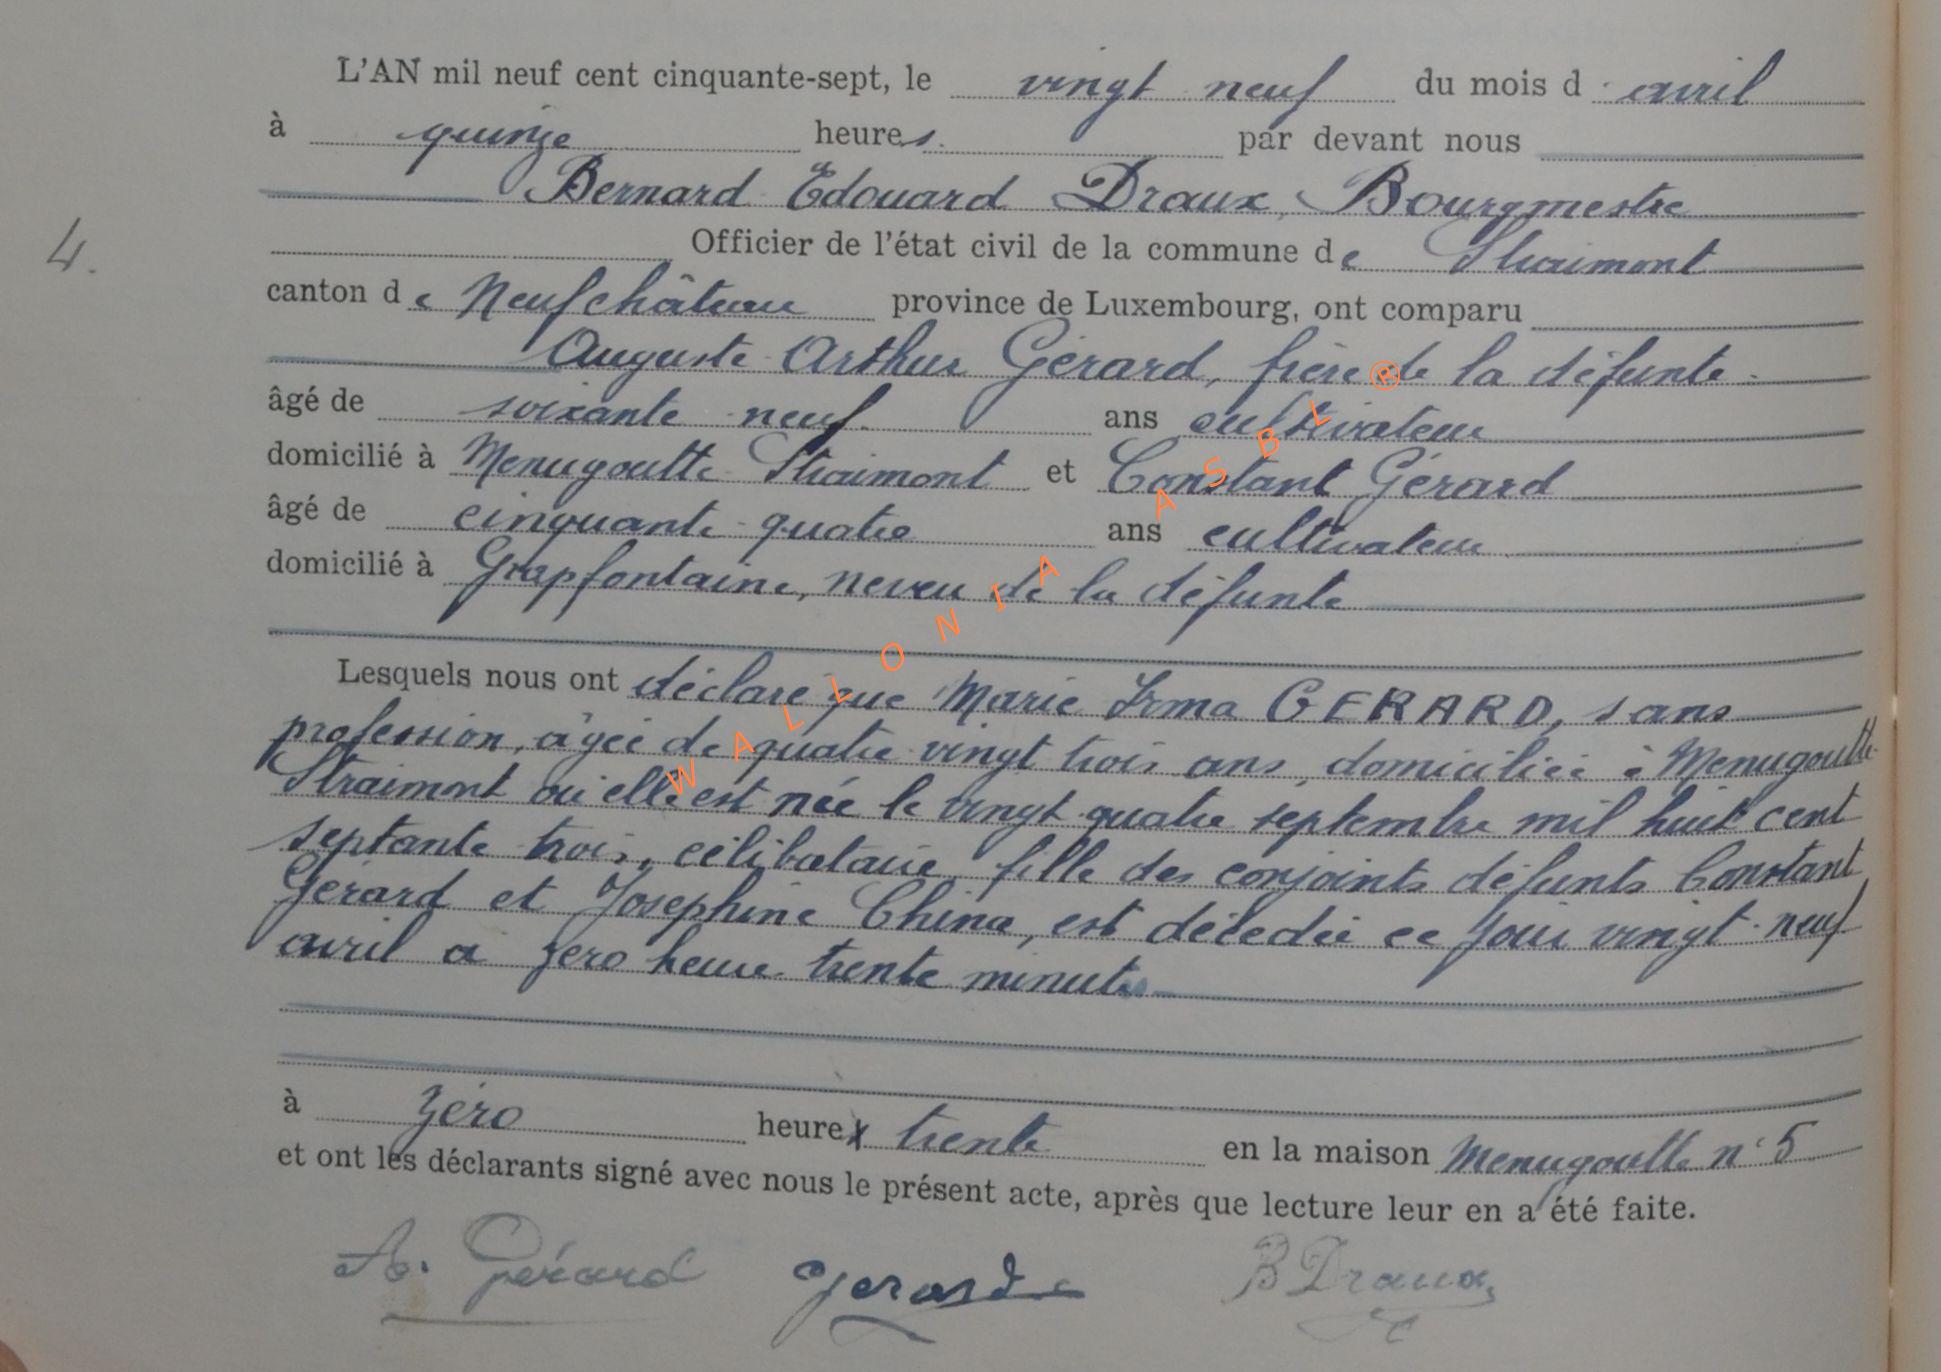 L'AN mil neuf cent cinquante-sept, le vingt neuf du mois d avril
à quinze heures. par devant nous
Bernard Edouard Draux, Bourgmestre
4.
Officier de l'état civil de la commune de Straimont
canton de Neufchâteau province de Luxembourg, ont comparu
Auguste Arthur Gérard, frère de la défunte
âgé de soixante neuf ans cultivateur
domicilié à Menugoutte Straimont et Constant Gérard
âgé de cinquante quatre ans cultivateur
domicilié à Grapfontaine, neveu de la défunte
Lesquels nous ont déclaré que Marie Irma GERARD, sans
profession, âgée de quatre vingt trois ans, domiciliée à Menugoutte
Straimont où elle est née le vingt quatre septembre mil huit cent
septante trois, célibataire, fille des conjoints défunts Constant
Gérard et Josephine China, est décédée ce jour vingt neuf
avril à zero heure trente minutes
à zéro heure trente en la maison Menugoutte n° 5
et ont les déclarants signé avec nous le présent acte, après que lecture leur en a été faite.
A. Gérard Gerard B Draux
WALLONIA ASBL ®